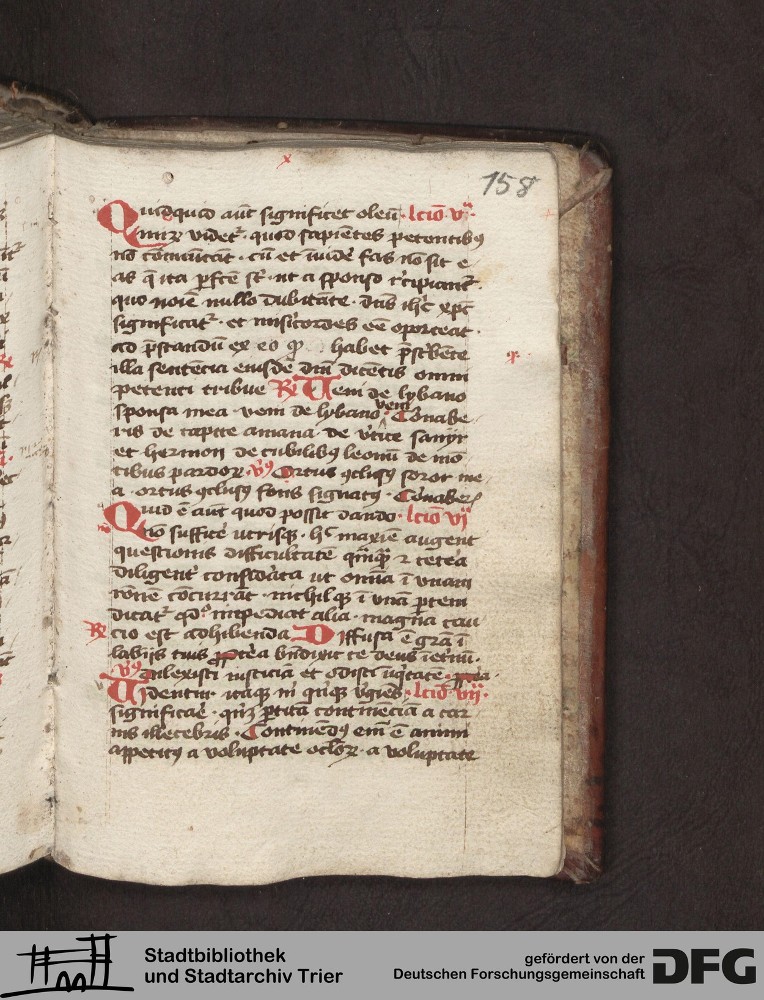 158
Quidquid aūt significet oleū · lc̄io v.ª
mirū videt᷑ · quod sapientes petentibꝰ
nō cōmūicāt · cū et inuidē fas nō sit e
as q̄ ita ꝑfcē st̄ · ut a sponso r̄cipiant᷑
quo noīe nullo dubitāte · dn̄s ih̄c xp̄c
significat᷑ · et misicordes eē oporteat ·
ad p̄standū ex eo qͦ habet p̄scͥbēte
illa sentencia eiusdē dn̄i dicētis omni
petenti tribue ℟ Ueni de lybano
sponsa mea · veni de lybano veni · Corōnabe
ris de capite amana · de v̄tice sanyr
et hermon de cubilibꝰ leonū de mō
tibus pardoꝝ · v̓ Ortus ꝯclusꝰ soror me
a · ortus ꝯclusꝰ fons signatꝰ · Corōnaber̄
Quid ē aūt quod possit dando · lc̄io vi
nō sufficē utrisqꝫ · h̄ maxīe augent
questionis difficultatē
diligent᷑ consid̓ata ut omīa ī vnam
rōnē cōcurrāt · nichilqꝫ ī vnā ꝑtem
dicat᷑ qd̓ impediat alia · magna cau
cio est adhibenda ℟ Diffusa ē grā ī
labijs tuis ꝓpt̓ea bn̄dixit te deus ī et̓nū ·
v̓ Dilexisti iusticiā et odisti īiq̓tatē ·
Uidentur itaqꝫ m̄ qn̄qꝫ v̓gīes · lc̄io vij ·
significarē · ꝑtitā continēciā a car
nis illecebris · Continēdꝰ em̄ ē animi
appetitꝰ a voluptate oc̄loꝝ · a voluptate
Stadtbibliothek
und Stadtarchiv Trier
gefördert von der
Deutschen Forschungsgemeinschaft
DFG